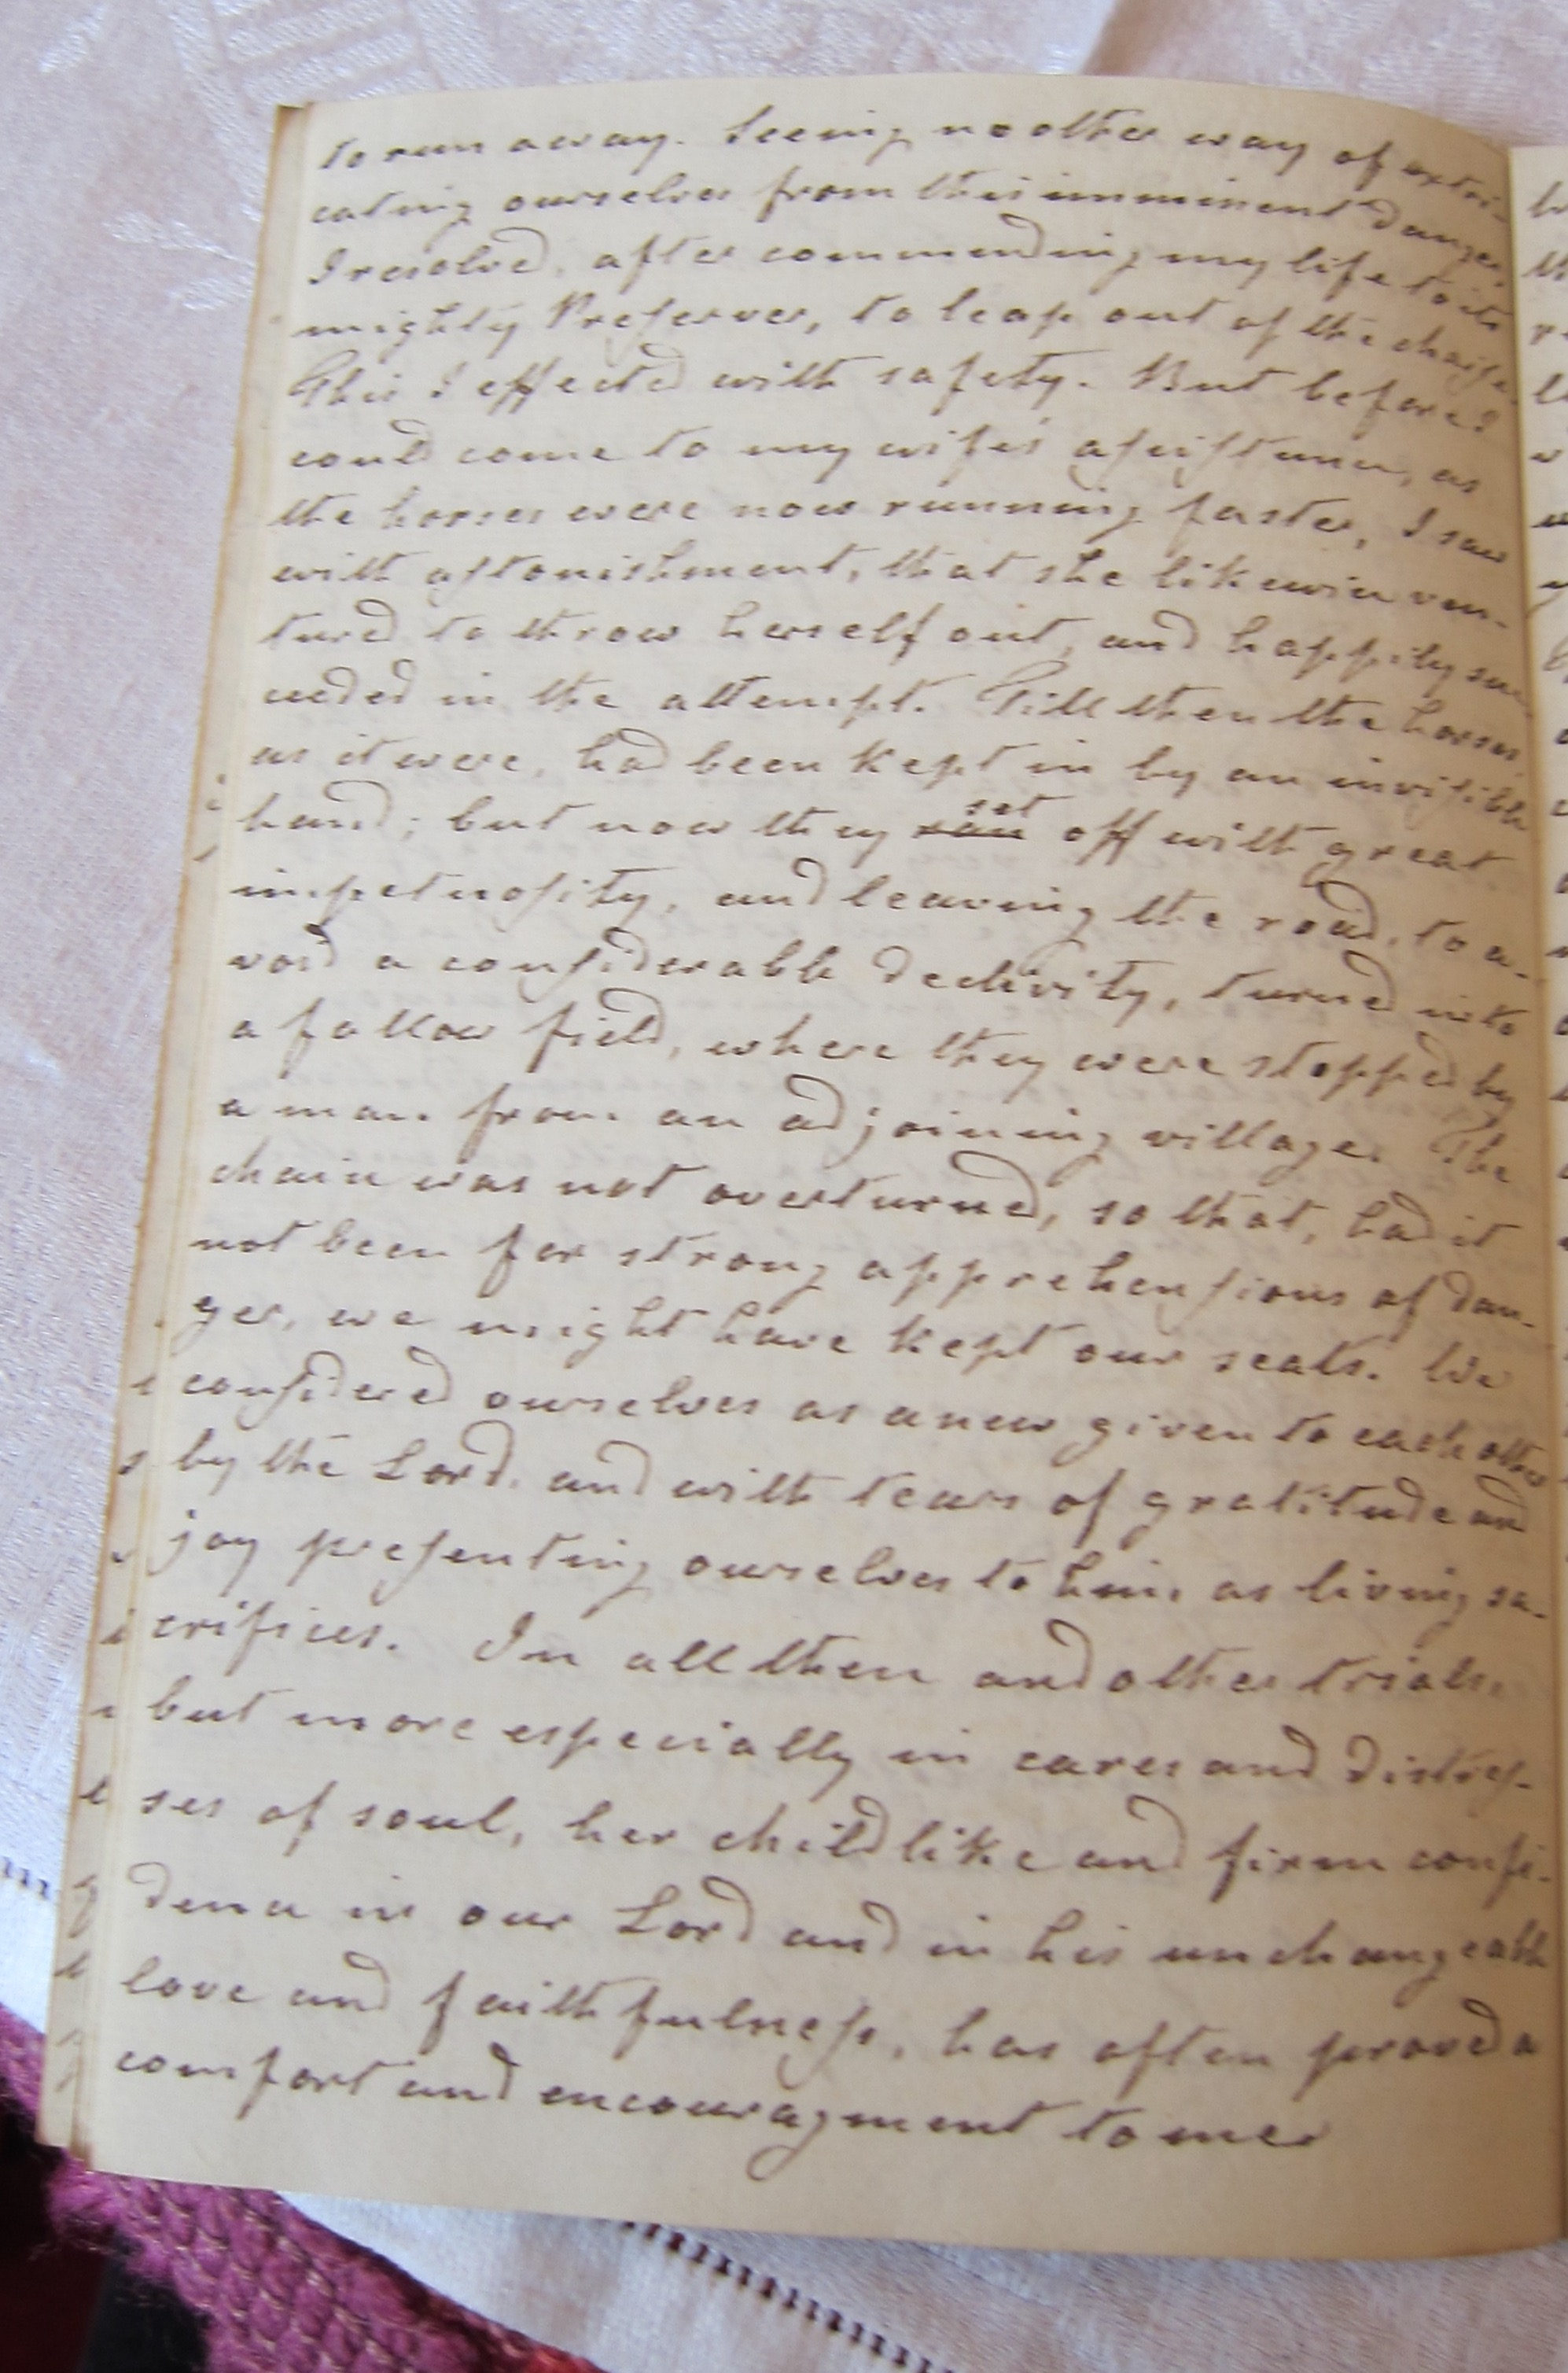 to run away. Seeing no other way of extri-
cating ourselves from this imminent danger,
I resolved, after commending my life to its
mighty Preserver, to leap out of the chaise.
This I effected with safety. But before I
could come to my wife's assistance, as
the horses were now running faster, I saw
with astonishment, that she likewise ven-
tured to throw herself out, and happily suc-
ceeded in the attempt. Till then the horses,
as it were, had been kept in by an invisible
hand; but now they ran set off with great
impetuosity, and leaving the road, to a-
void a considerable declivity, turned into
a fallow field, where they were stopped by
a man from an adjoining village. The
chaise was not overturned, so that, had it
not been for strong apprehensions of dan-
ger, we might have kept our seats. We
considered ourselves as anew given to each other
by the Lord, and with tears of gratitude and
joy presenting ourselves to him, as living sa-
crifices. In all these and other trials,
but more especially in cares and distres-
ses of soul, her childlike and firm confi-
dence in our Lord and in his unchangeable
love and faithfulness, has often proved a
comfort and encouragment to me.